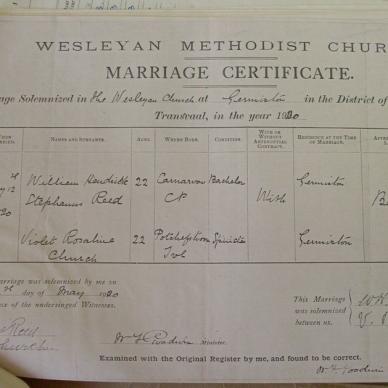 WESLEYAN METHODIST CHUR
MARRIAGE CERTIFICATE.
age Solemnized in the Wesleyan Church at Germiston in the District of
Transvaal, in the year 1920
NAMES AND SURNAME. AGES. WHERE BORN. CONDITION. WITH OR WITHOUT ANTENUPTIAL CONTRACT. RESIDENCE AT THE TIME OF MARRIAGE.
William Hendrick 22 Carnarvon Bachelor Germiston
Stephanus Reed CP With
Violet Rosaline 22 Potchefstroom Spinster Germiston
Church Tvl
arriage was solemnized by me on
day of May 1920
nce of the undersigned Witnesses.
This Marriage
was solemnized
between us.
Reed
Church
W F Goodwin Minister.
Examined with the Original Register by me, and found to be correct.
W F Goodwin